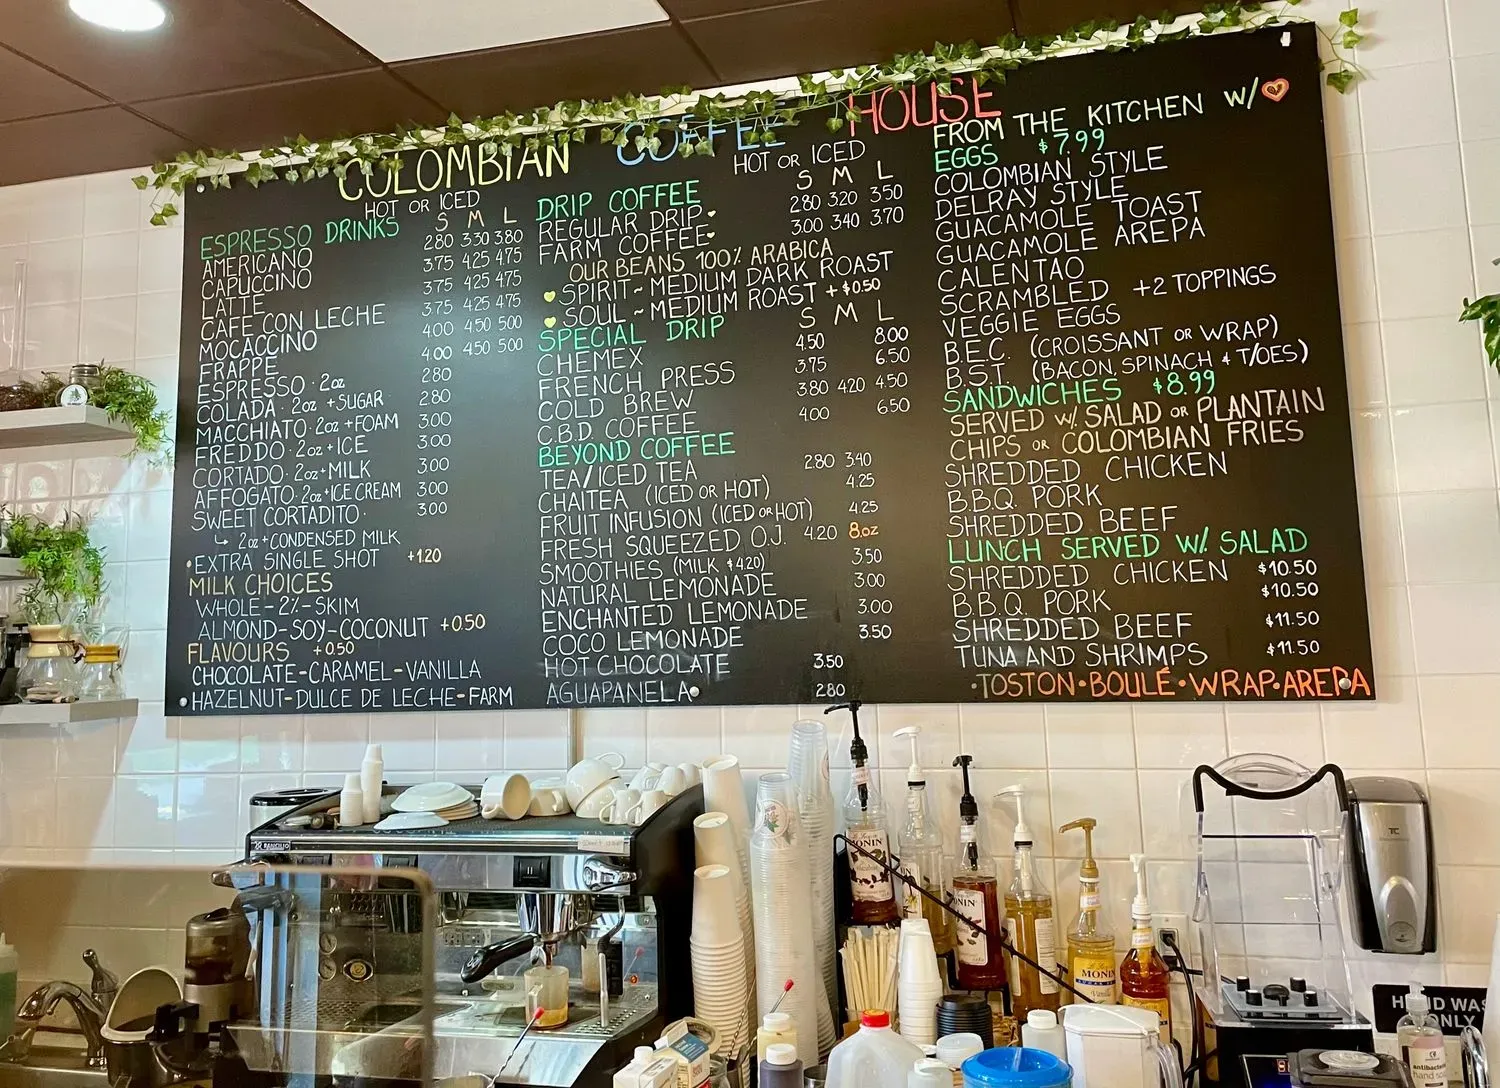 COLOMBIAN COFFEE HOUSE
HOT OR ICED
ESPRESSO DRINKS S M L
AMERICANO 2.80 3.30 3.80
CAPUCCINO 3.75 4.25 4.75
LATTE 3.75 4.25 4.75
CAFE CON LECHE 3.75 4.25 4.75
MOCACCINO 4.00 4.50 5.00
FRAPPE 4.00 4.50 5.00
ESPRESSO · 2oz 2.80
COLADA · 2oz + SUGAR 2.80
MACCHIATO · 2oz + FOAM 3.00
FREDDO · 2oz + ICE 3.00
CORTADO · 2oz + MILK 3.00
AFFOGATO · 2oz + ICE CREAM 3.00
SWEET CORTADITO · 3.00
↳ 2oz + CONDENSED MILK
• EXTRA SINGLE SHOT +1.20
MILK CHOICES
WHOLE - 2% - SKIM
ALMOND - SOY - COCONUT +0.50
FLAVOURS +0.50
CHOCOLATE - CARAMEL - VANILLA
HAZELNUT - DULCE DE LECHE - FARM
HOT OR ICED
DRIP COFFEE S M L
REGULAR DRIP 2.80 3.20 3.50
FARM COFFEE 3.00 3.40 3.70
OUR BEANS 100% ARABICA
SPIRIT ~ MEDIUM DARK ROAST
SOUL ~ MEDIUM ROAST + $0.50
SPECIAL DRIP S M L
CHEMEX 4.50 8.00
FRENCH PRESS 3.75 6.50
COLD BREW 3.80 4.20 4.50
C.B.D COFFEE 4.00 6.50
BEYOND COFFEE
TEA/ICED TEA 2.80 3.40
CHAITEA (ICED OR HOT) 4.25
FRUIT INFUSION (ICED OR HOT) 4.25
FRESH SQUEEZED O.J. 4.20 8oz
SMOOTHIES (MILK $4.20) 3.50
NATURAL LEMONADE 3.00
ENCHANTED LEMONADE 3.00
COCO LEMONADE 3.50
HOT CHOCOLATE 3.50
AGUAPANELA 2.80
FROM THE KITCHEN W/
EGGS $7.99
COLOMBIAN STYLE
DELRAY STYLE
GUACAMOLE TOAST
GUACAMOLE AREPA
CALENTAO
SCRAMBLED +2 TOPPINGS
VEGGIE EGGS
B.E.C. (CROISSANT OR WRAP)
B.S.T. (BACON, SPINACH + T/OES)
SANDWICHES $8.99
SERVED W/ SALAD OR PLANTAIN
CHIPS OR COLOMBIAN FRIES
SHREDDED CHICKEN
B.B.Q. PORK
SHREDDED BEEF
LUNCH SERVED W/ SALAD
SHREDDED CHICKEN $10.50
B.B.Q. PORK $10.50
SHREDDED BEEF $11.50
TUNA AND SHRIMPS $11.50
· TOSTON · BOULÉ · WRAP · AREPA
RANCILIO
MONIN
MONIN
MONIN
Vanilla
TC
antibacterial
hand soap